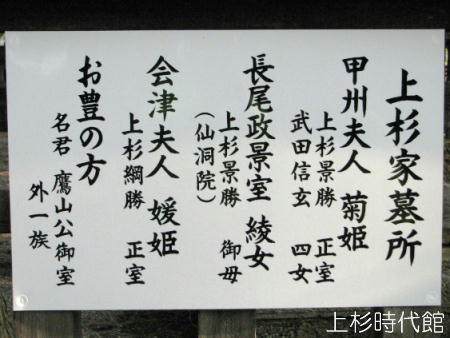 上杉家墓所
甲州夫人 菊姫
上杉景勝 正室
武田信玄 四女
長尾政景室 綾女
上杉景勝 御母
(仙洞院)
会津夫人 媛姫
上杉綱勝 正室
お豊の方
名君 鷹山公御室
外一族
上杉時代館